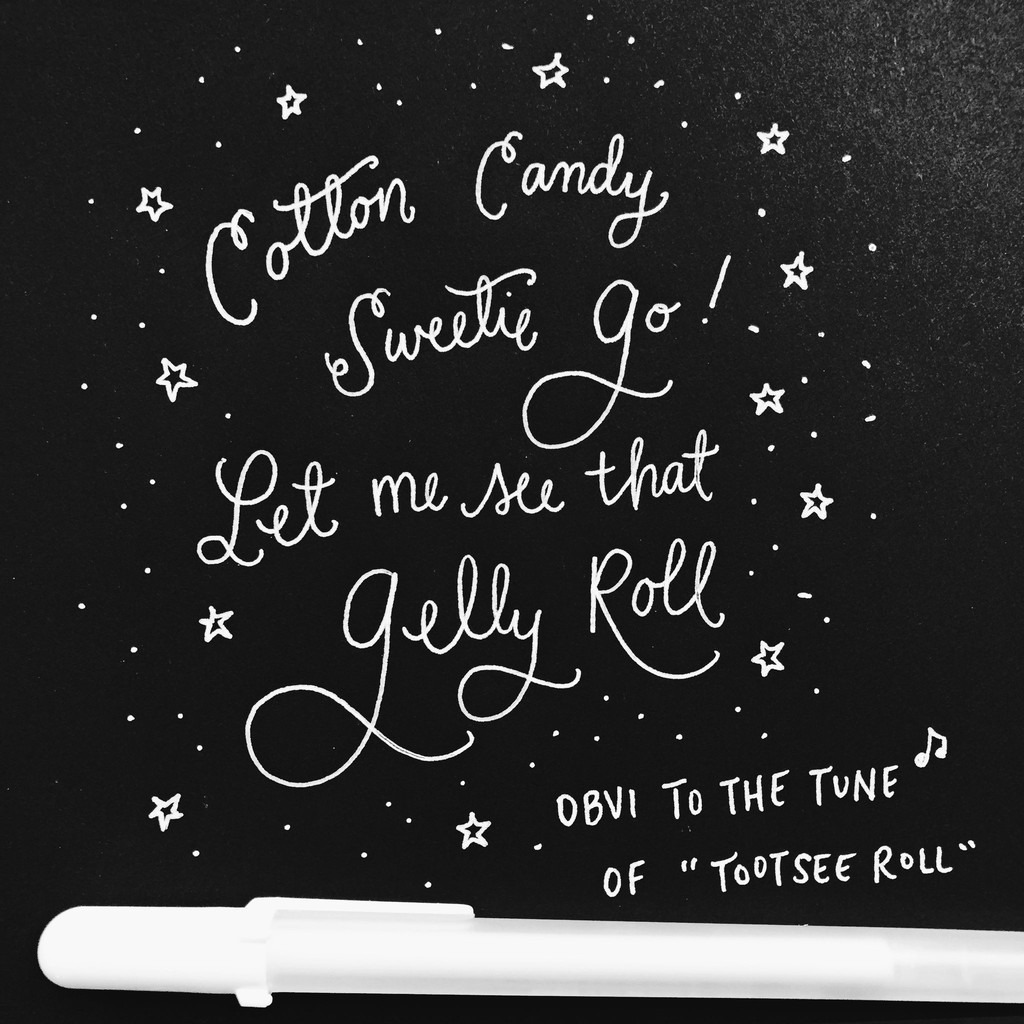 Cotton Candy
Sweetie go!
Let me see that
gelly Roll
OBVI TO THE TUNE
OF "TOOTSEE ROLL"